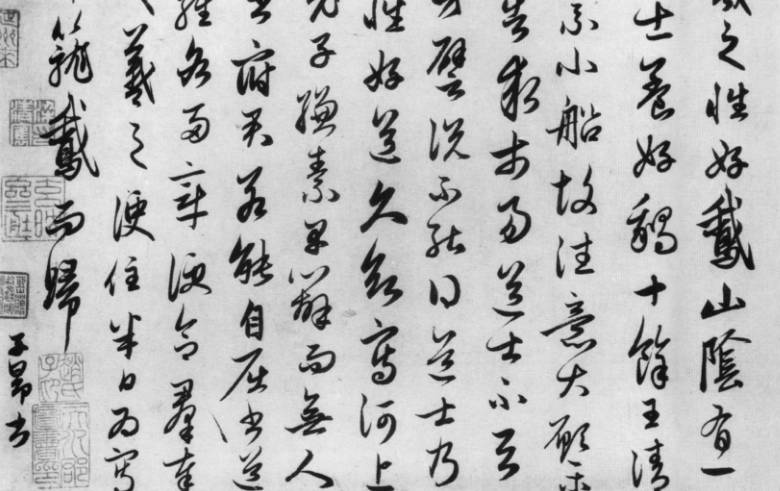 羲之性好鵞山陰有一
士養好鵝十餘王清
乘小船故往意大願樂
告求市易道士不與
百方譬説不能得道士乃
言性好道久欲寫河上
老子縑素早辦而無人
書府君若能自屈書道
經各兩章便合羣奉
羲之便住半日為寫
籠鵞而歸
子昂書